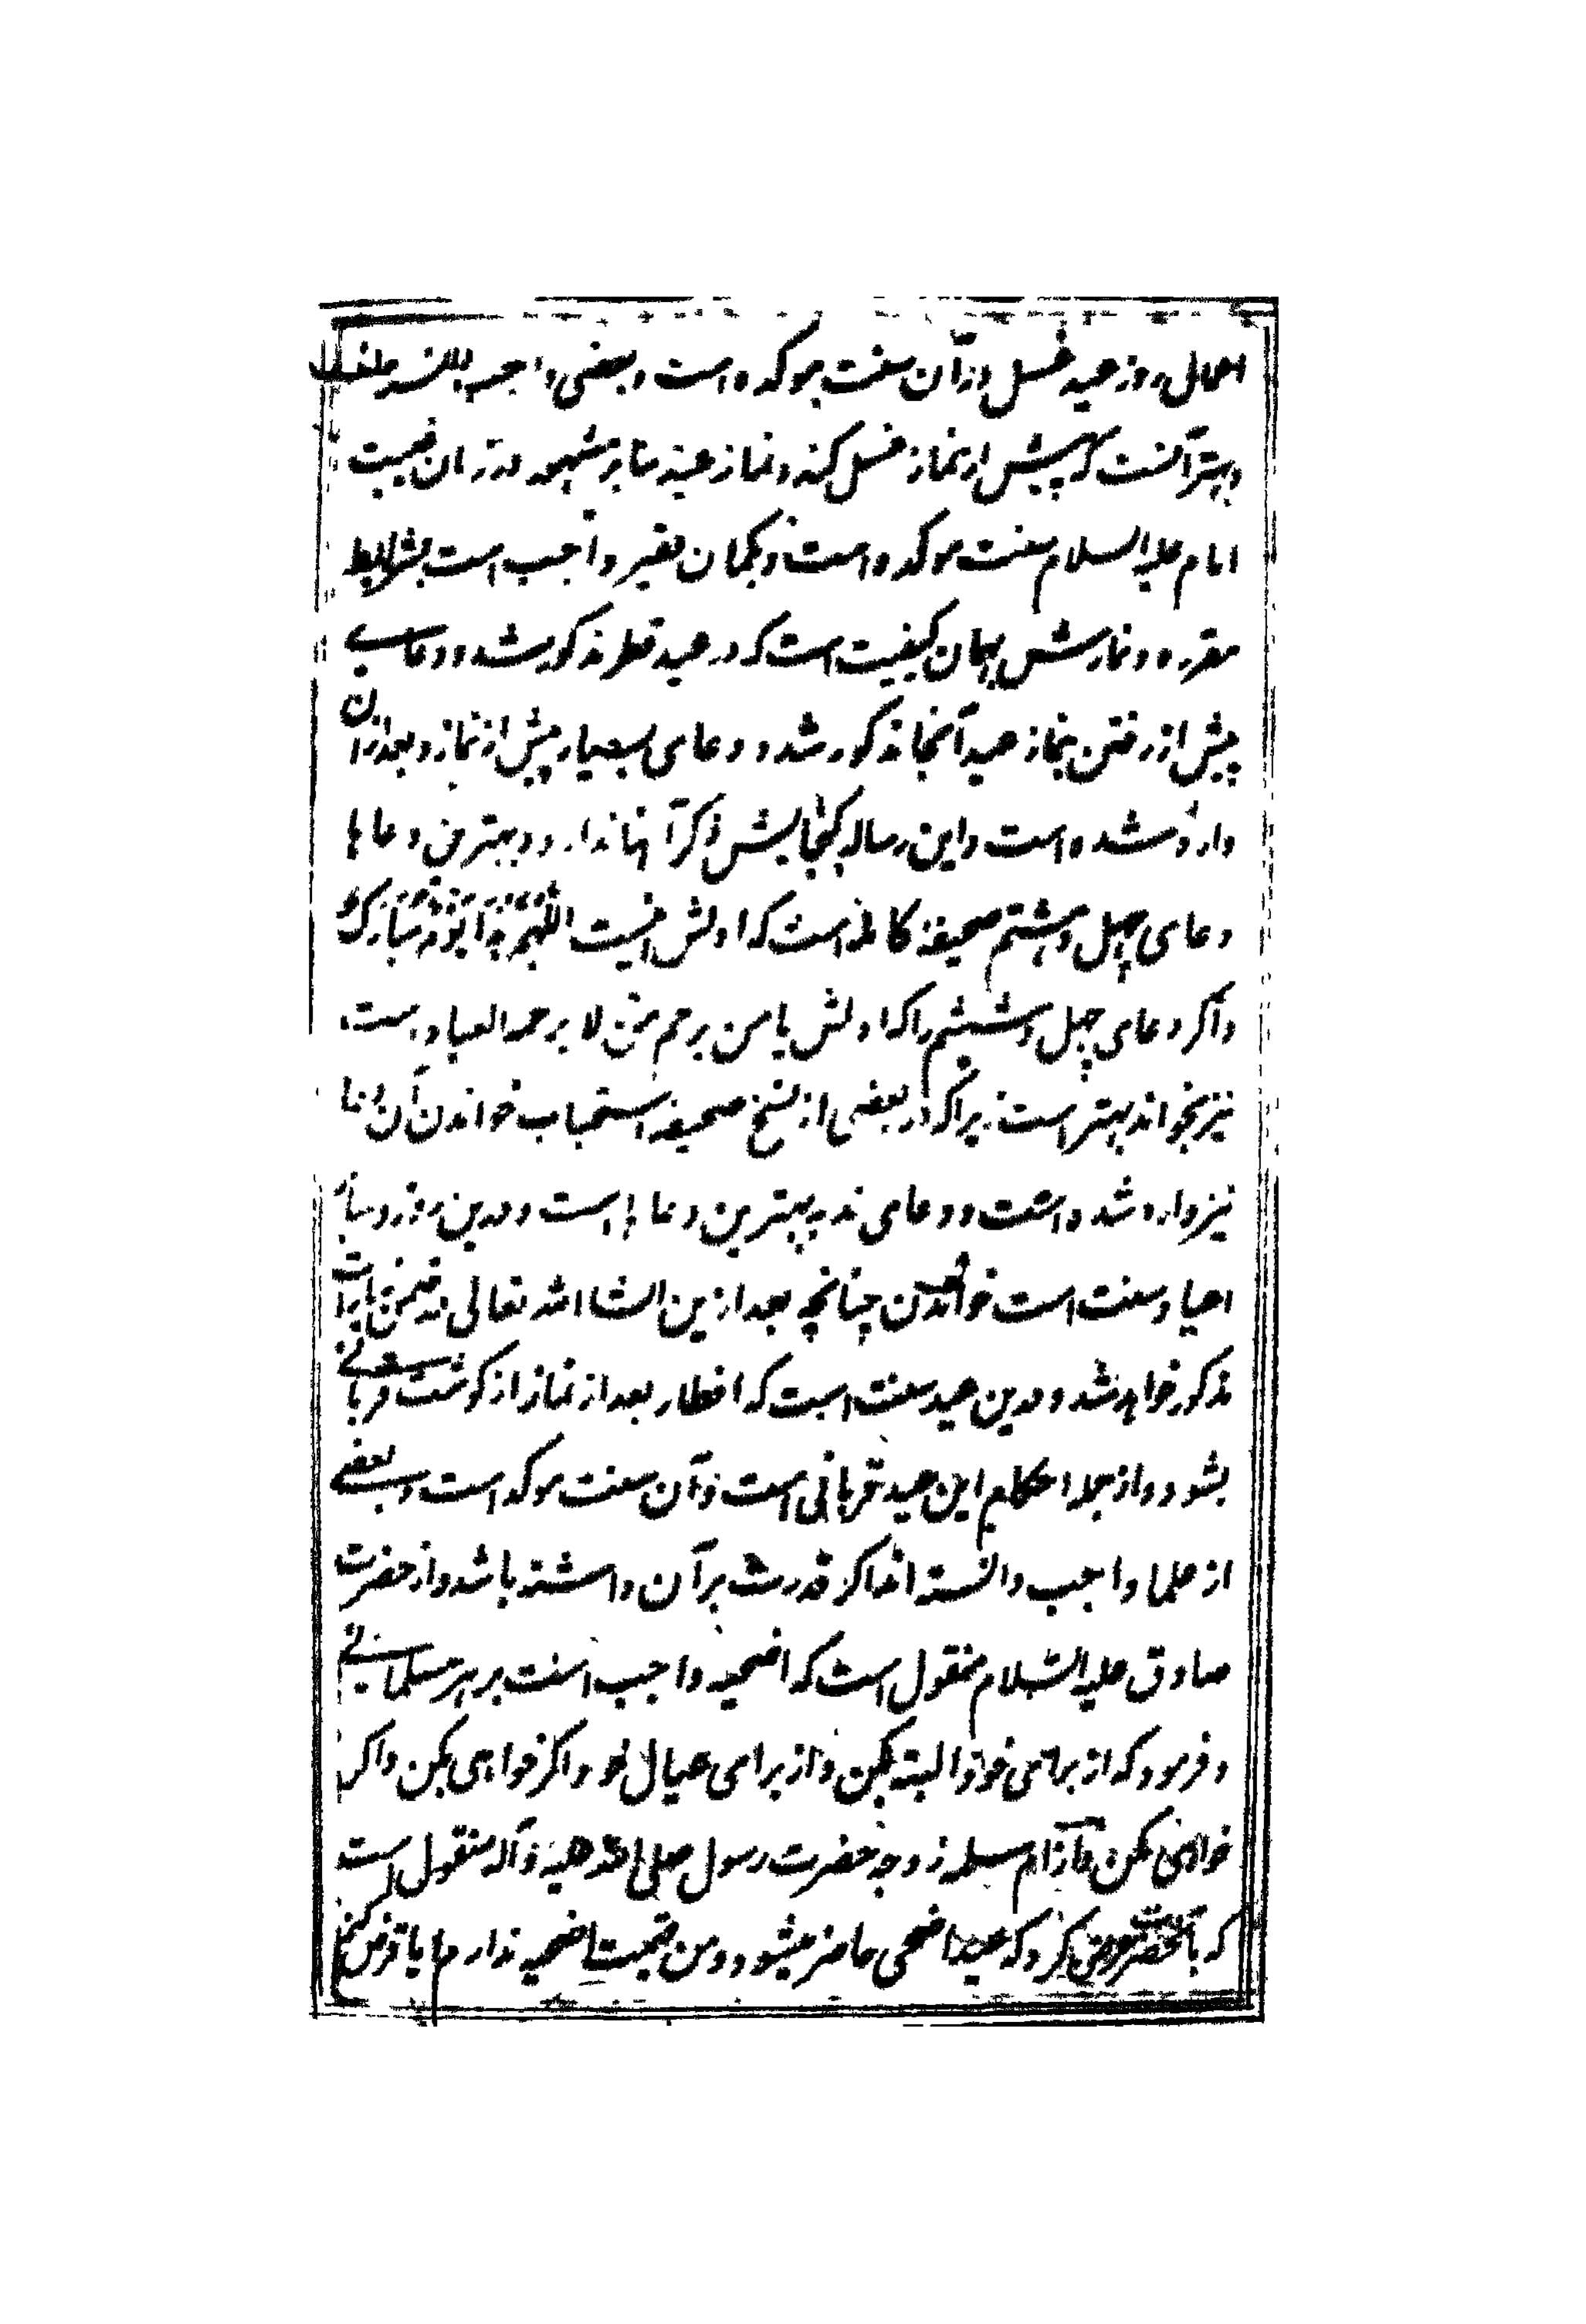 اعمال روز عید غسل و آن سنت موکده است و بعضی واجب دانسته
و بهتر آنست که پیش از نماز غسل کند و نماز عید بنا بر مشهور در زمان غیبت
امام علیه السلام سنت موکده است و بگمان فقیر واجب است بشرایط
مقرره و نمازش بهمان کیفیت است که در عید فطر مذکور شد و دعای
پیش از رفتن بنماز عید آنجا مذکور شد و دعای بسیار پیش از نماز و بعد از آن
وارد شده است و این رساله گنجایش ذکر آنها ندارد و بهترین دعاها
دعای چهل و هشتم صحیفه کامله است که اولش اینست اللهم هذا یوم مبارک
و اگر دعای چهل و ششم را که اولش یا من یرحم من لا یرحمه العباد است
نیز بخواند بهتر است زیرا که در بعضی از نسخ صحیفه استحباب خواندن آن دعا
نیز وارد شده است و دعای ندبه بهترین دعاها است و درین روز و سایر
اعیاد سنت است خواندن چنانچه بعد ازین انشاء الله تعالی در ضمن زیارات
مذکور خواهد شد و درین عید سنت است که افطار بعد از نماز از گوشت قربانی
بشود و از جمله احکام این عید قربانی است و آن سنت موکد است و بعضی
از علما واجب دانسته اند اگر قدرت بر آن داشته باشد و از حضرت
صادق علیه السلام منقول است که اضحیه واجب است بر هر مسلمانی
و فرمود که از برای خود البته بکن و از برای عیال خود اگر خواهی بکن و اگر
خواهی مکن و از ام سلمه زوجه حضرت رسول صلی الله علیه و آله منقول است
که بآنحضرت عرض کرد که عید اضحی حاضر میشود و من قیمت اضحیه ندارم آیا قرض کنم